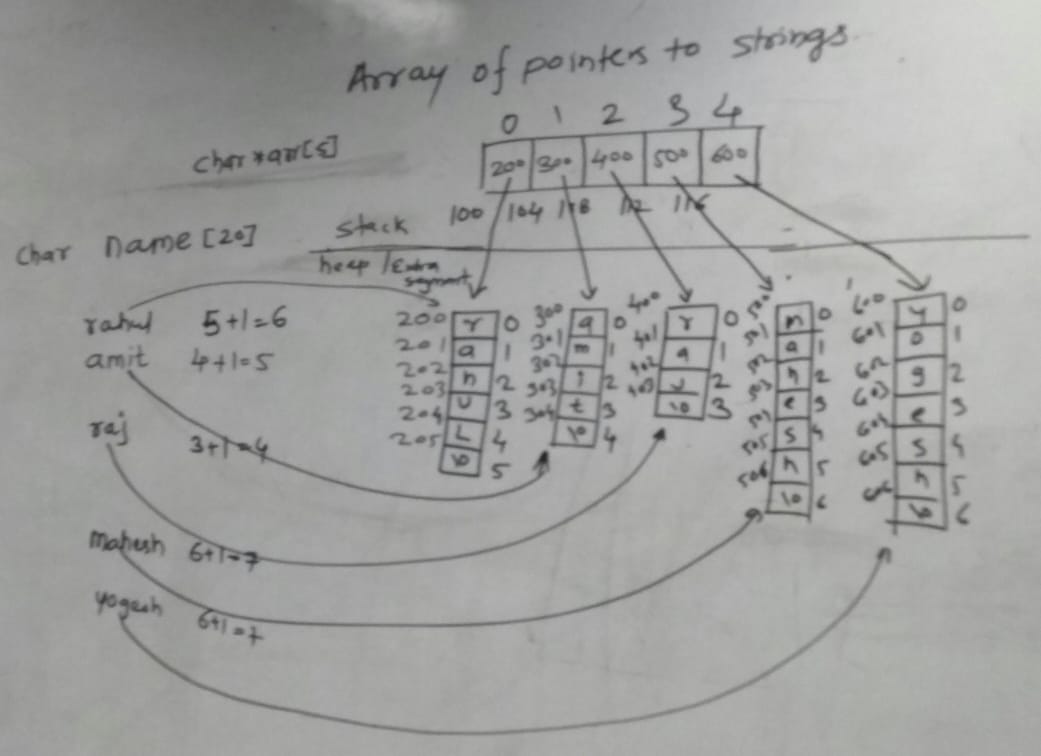 Array of pointers to strings
0 1 2 3 4
char *arr[5]
200 300 400 500 600
100 104 118 112 116
char name[20]
stack
heap / Extra segment
rahul 5+1=6
amit 4+1=5
raj 3+1=4
mahesh 6+1=7
yogesh 6+1=7
200 r 0
201 a 1
202 h 2
203 u 3
204 L 4
205 \0 5
300 a 0
301 m 1
302 i 2
303 t 3
304 \0 4
400 r 0
401 a 1
402 J 2
403 \0 3
500 m 0
501 a 1
502 h 2
503 e 3
s 4
505 h 5
506 \0 6
600 y 0
601 o 1
602 g 2
603 e 3
604 s 4
605 h 5
606 \0 6